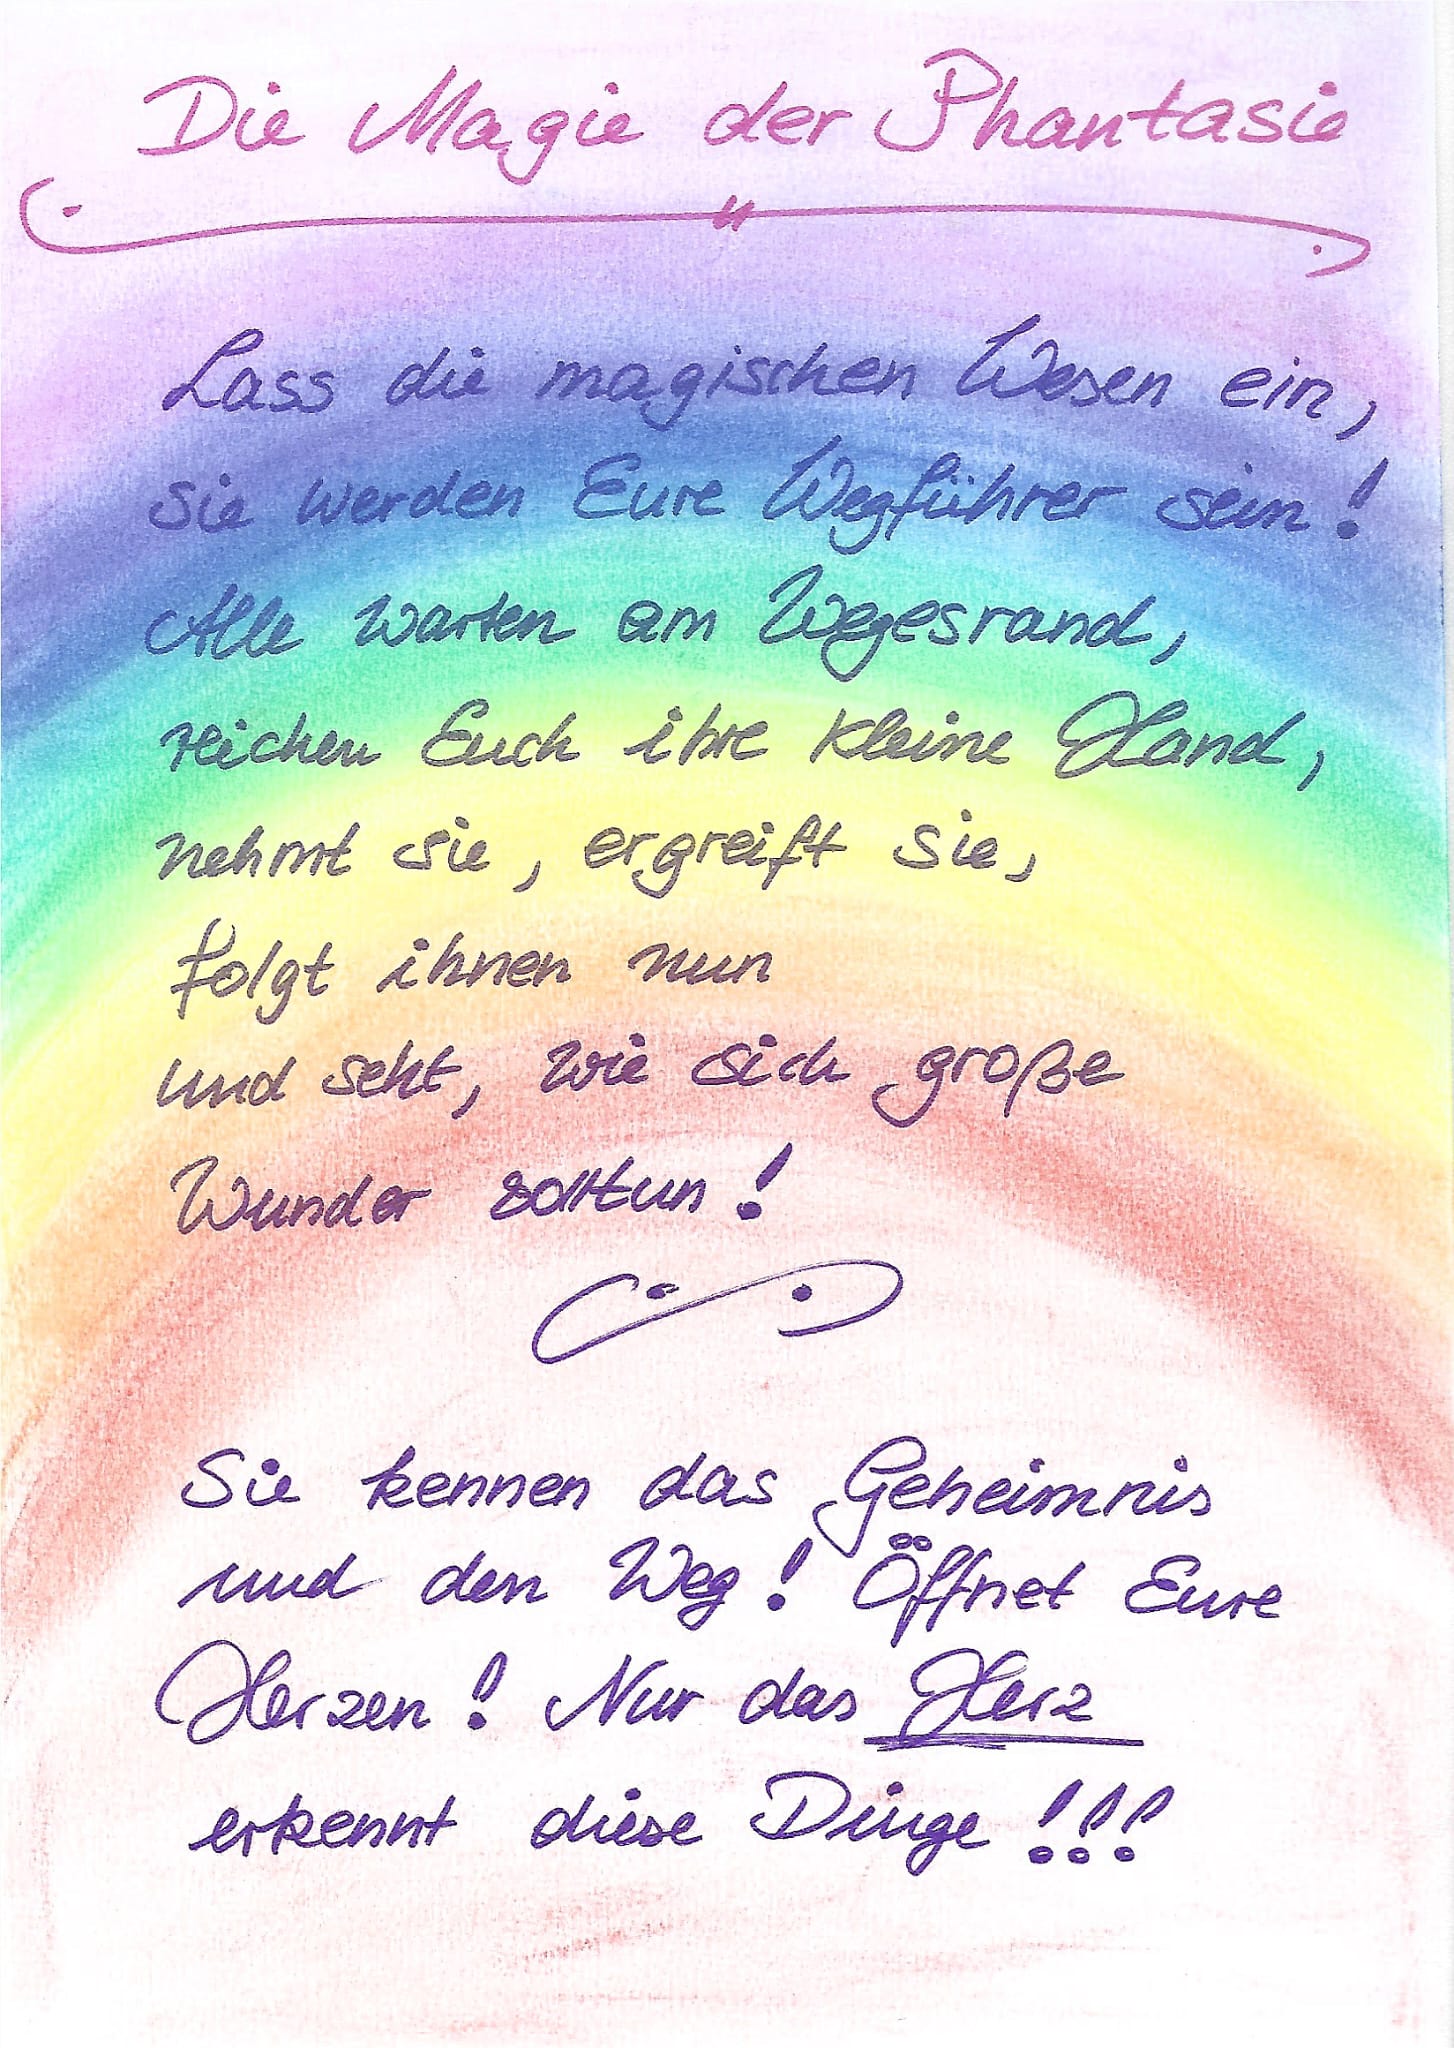 Die Magie der Phantasie
Lass die magischen Wesen ein,
sie werden Eure Wegführer sein!
Alle warten am Wegesrand,
reichen Euch ihre kleine Hand,
nehmt sie, ergreift sie,
folgt ihnen nun
und seht, wie sich große
Wunder auftun!
Sie kennen das Geheimnis
und den Weg! Öffnet Eure
Herzen! Nur das Herz
erkennt diese Dinge!!!